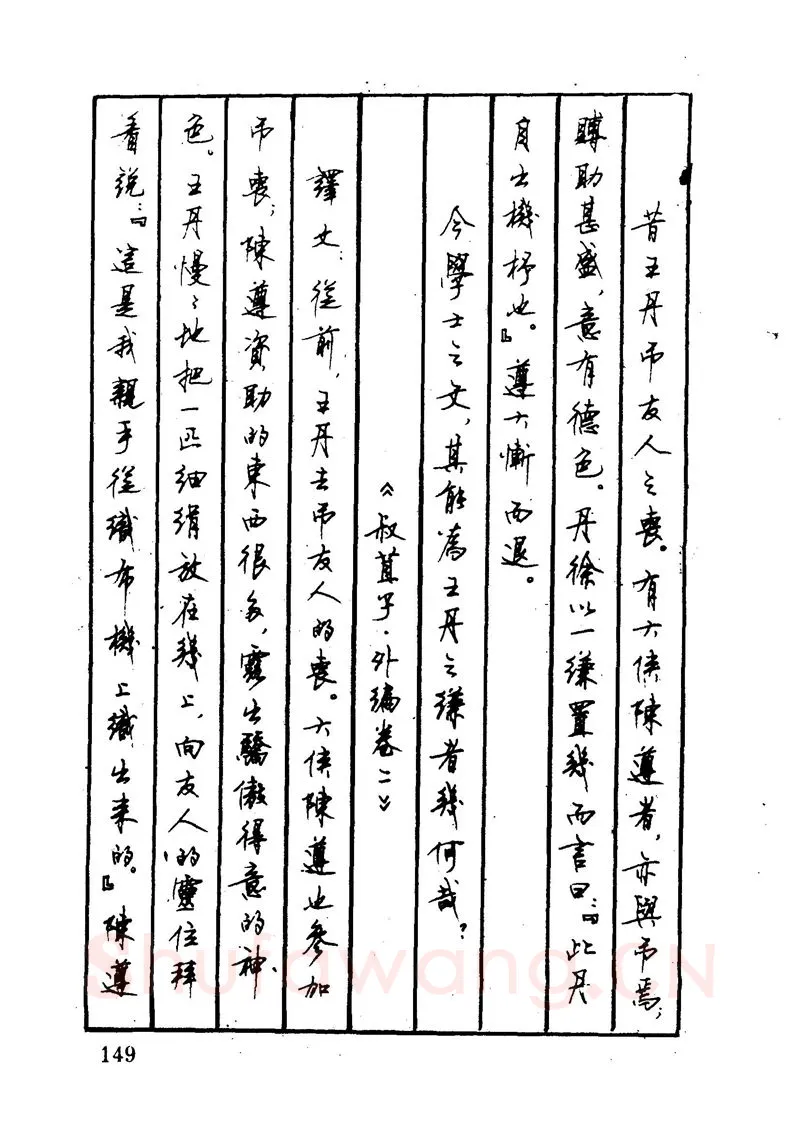 昔王丹吊友人之喪。有大俠陳遵者，亦與吊焉；
賻助甚盛，意有德色。丹徐以一縑置幾而言曰：『此丹
自出機杼也。』遵大慚而退。
今學士之文，其能為王丹之縑者幾何哉？
《叔苴子·外編卷二》
譯文：從前，王丹去吊友人的喪。大俠陳遵也參加
吊喪；陳遵資助的東西很多，露出驕傲得意的神
色。王丹慢々地把一匹細絹放在幾上，向友人的靈位拜
着説：『這是我親手從織布機上織出来的。』陳遵
149
Shufawang.CN